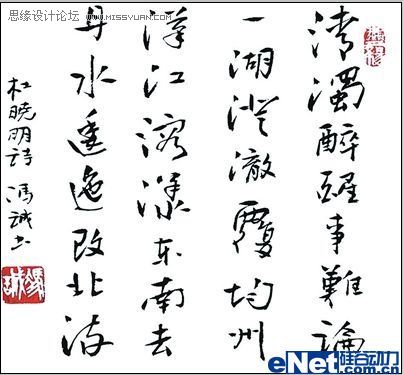 思缘设计论坛 WWW.MISSYUAN.COM
清濁醉醒事難論
一湖澄澈覆均州
江溶漾东南去
丹水逶迤改北流
杜晓明诗 冯诚书
eNet硅谷动力